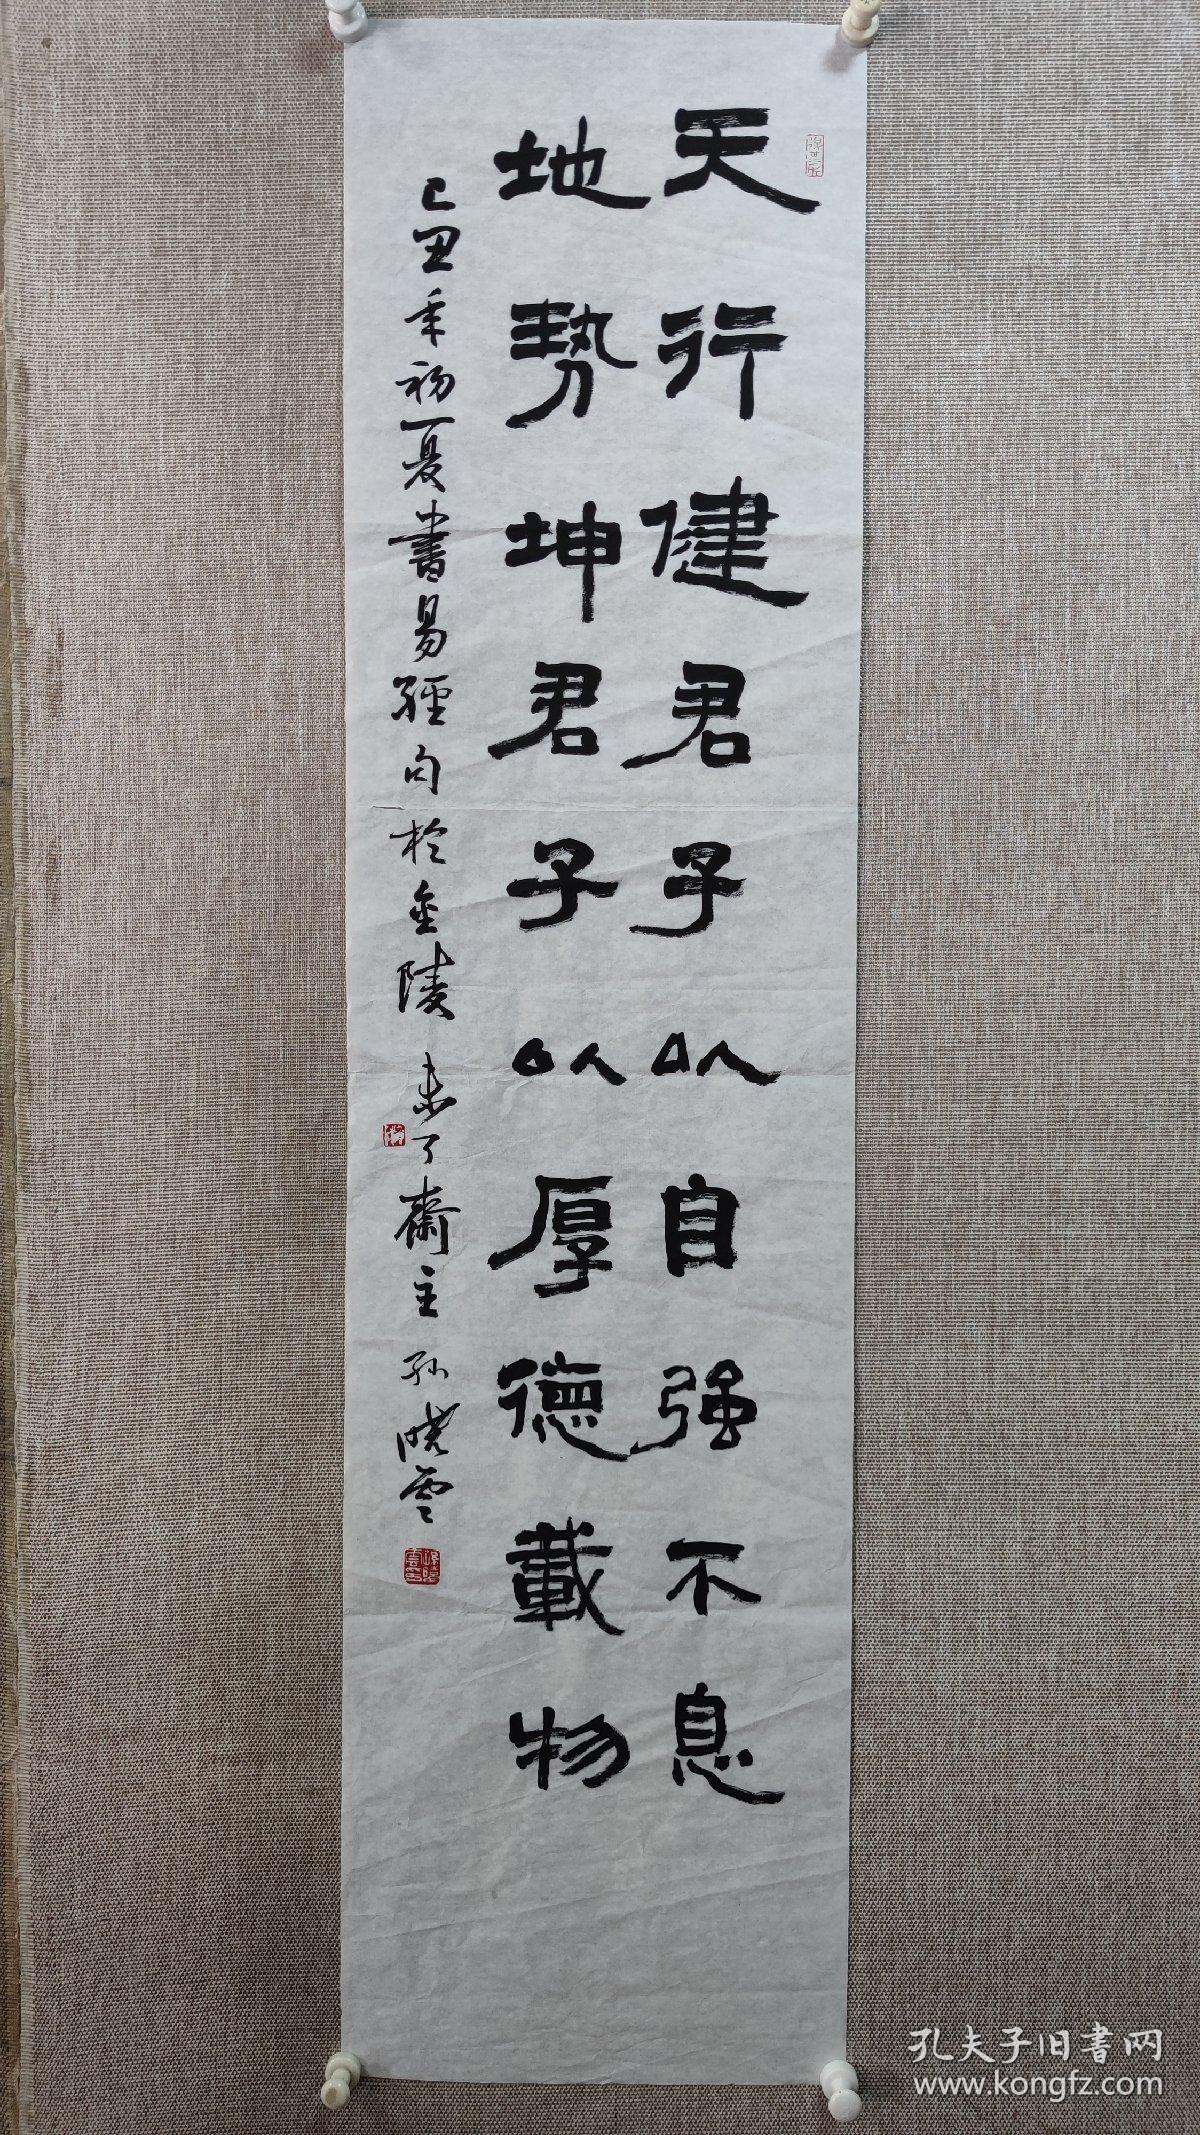 天行健君子以自强不息
地势坤君子以厚德載物
己丑年初夏書易經句於金陵 未了齋主 孙晓雲
孔夫子旧書网
www.kongfz.com